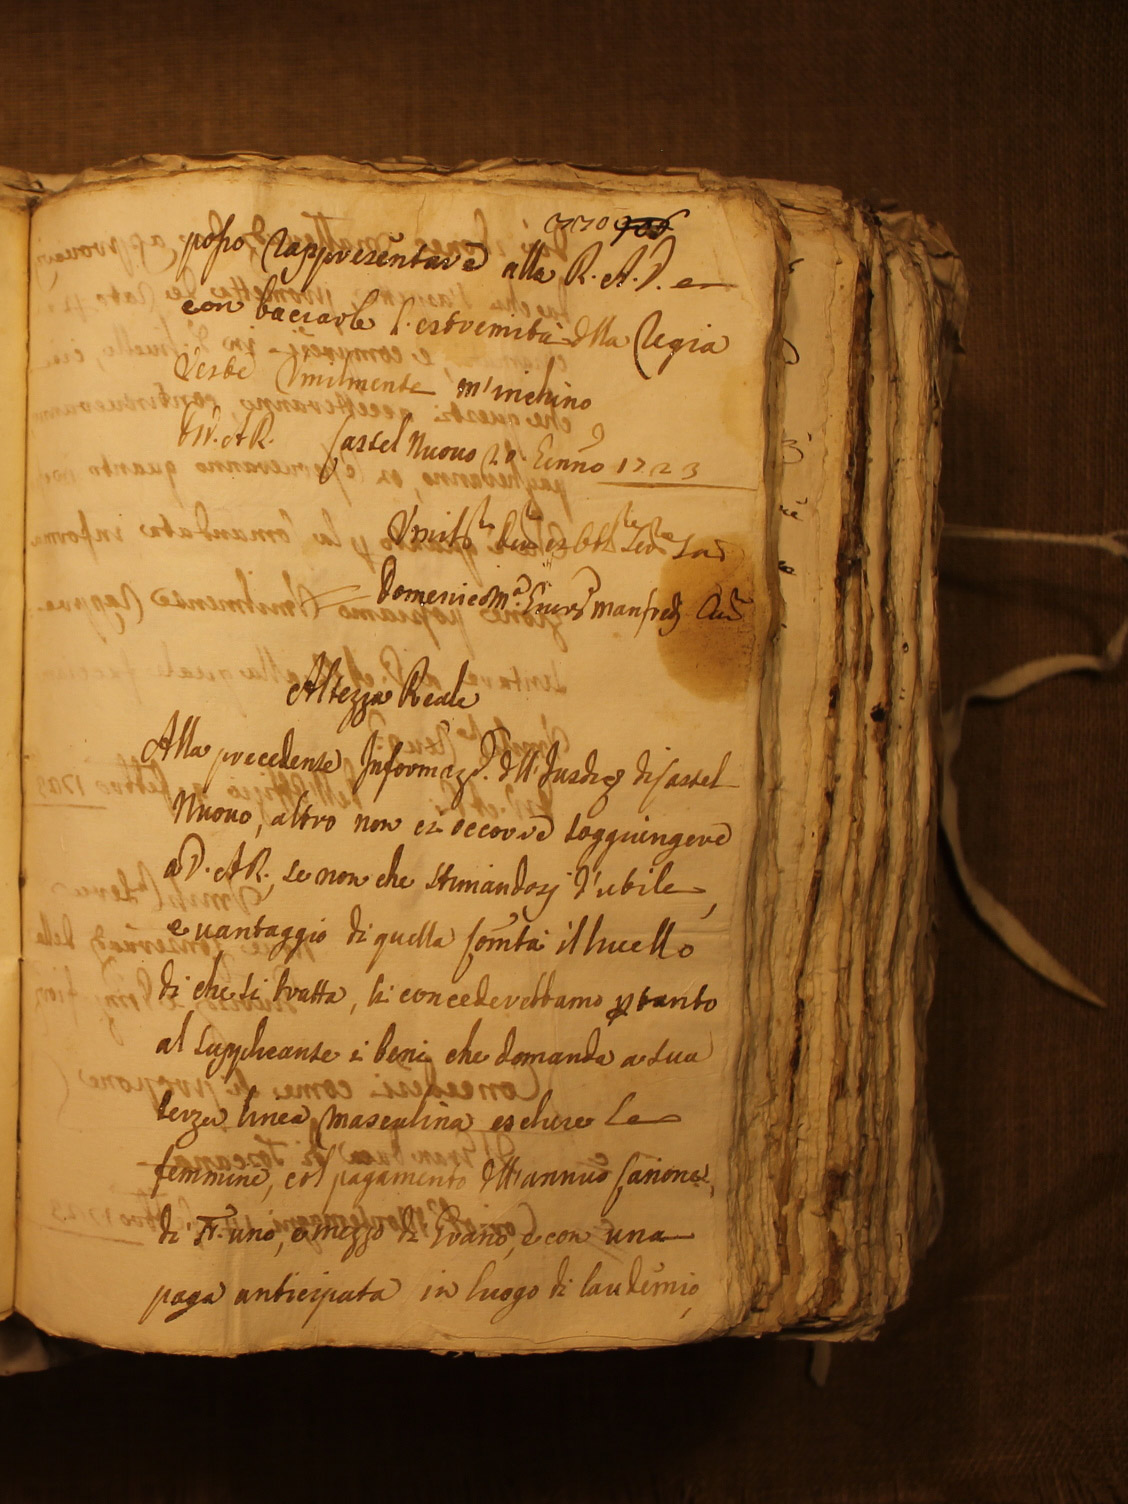 posso rappresentare alla R. A. V. e
con baciarle l'estremità della Regia
Veste Umilmente m'inchino
Di V. A. R. Castel Nuovo 20. Genn.o 1723
Domenico M.a Manfred
Altezza Reale
Alla precedente Informaz.e dell' Jusd.e di Castel
Nuovo, altro non ci occorre soggiungere
a V. A. R., se non che stimandosi d'utile,
e vantaggio di quella Com.tà il livello
di che si tratta, li concederebbamo p tanto
al supplicante i beni che domanda a sua
terza linea mascolina escluse le
femmine, col pagamento dell'annuo Canone,
di St. uno, e mezzo di Grano, e con una
paga anticipata in luogo di laudemio,